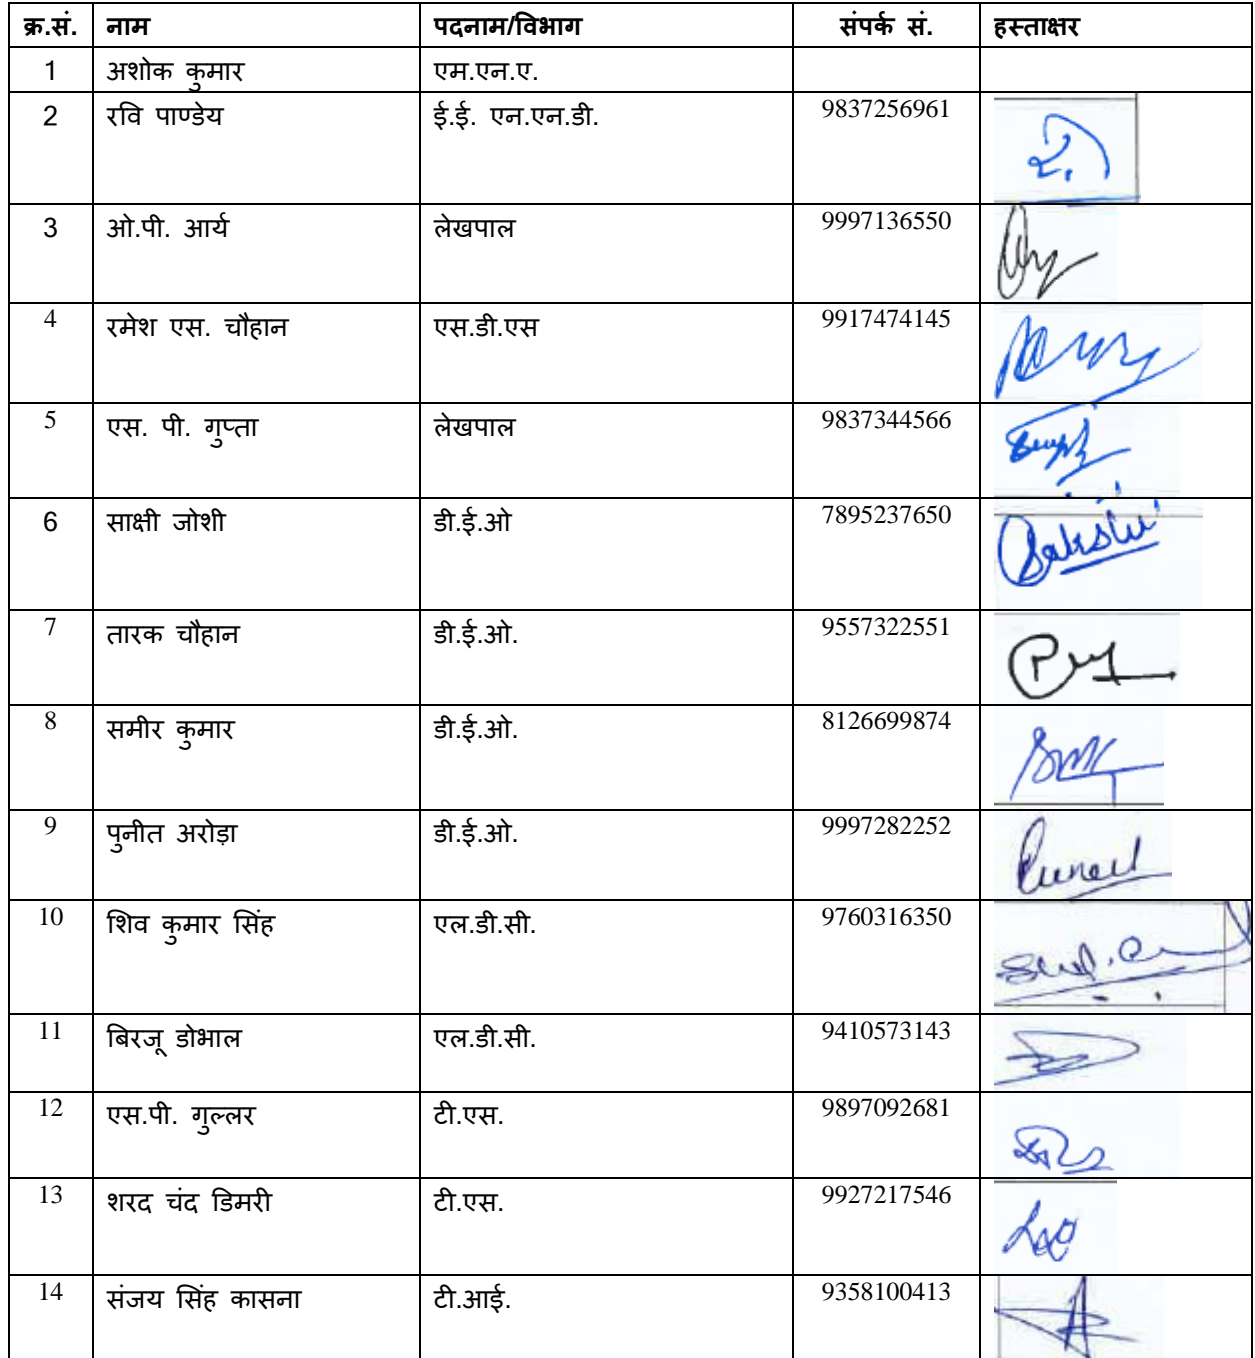 क्र.सं. नाम पदनाम/विभाग संपर्क सं. हस्ताक्षर
1 अशोक कुमार एम.एन.ए.
2 रवि पाण्डेय ई.ई. एन.एन.डी. 9837256961
3 ओ.पी. आर्य लेखपाल 9997136550
4 रमेश एस. चौहान एस.डी.एस 9917474145
5 एस. पी. गुप्ता लेखपाल 9837344566
6 साक्षी जोशी डी.ई.ओ 7895237650 Sakshi
7 तारक चौहान डी.ई.ओ. 9557322551
8 समीर कुमार डी.ई.ओ. 8126699874
9 पुनीत अरोड़ा डी.ई.ओ. 9997282252 Puneet
10 शिव कुमार सिंह एल.डी.सी. 9760316350
11 बिरजू डोभाल एल.डी.सी. 9410573143
12 एस.पी. गुल्लर टी.एस. 9897092681
13 शरद चंद डिमरी टी.एस. 9927217546
14 संजय सिंह कासना टी.आई. 9358100413